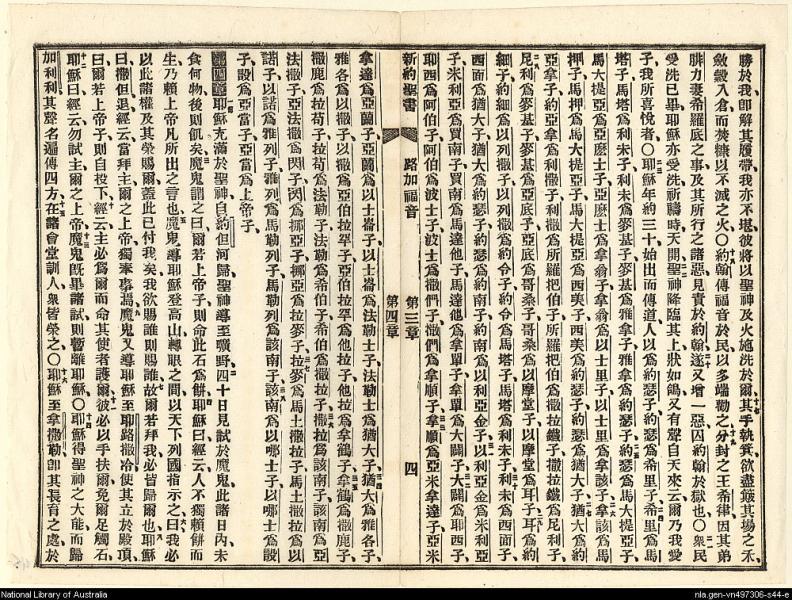 勝於我卽解其履帶我亦不堪彼將以聖神及火施洗於爾其手執箕欲盡簸其場之禾
斂穀入倉而焚糠以不滅之火〇約翰傳福音於民以多端勸之分封之王希律因其弟
腓力妻希羅底之事及其所行之諸惡見責於約翰遂又增一惡囚約翰於獄也〇衆民
愛洗已畢耶穌亦受洗祈禱時天開聖神降臨其上狀如鴿又有聲自天來云爾乃我愛
子我所喜悅者〇耶穌年約三十始出而傳道人以爲約瑟子約瑟爲希里子希里爲馬
塔子馬塔爲利未子利未爲麥基子麥基爲雅拿子雅拿爲約瑟子約瑟爲馬大提亞子
馬大提亞爲亞麽士子亞麽士爲拿翁子拿翁爲以士里子以士里爲拿該子拿該爲馬
押子馬押爲馬大提亞子馬大提亞爲西美子西美爲約瑟子約瑟爲猶大子猶大爲約
亞拿子約亞拿爲利撒子利撒爲所羅把伯子所羅把伯爲撒拉鐵子撒拉鐵爲尼利子
尼利爲麥基子麥基爲亞底子亞底爲哥桑子哥桑爲以摩堂子以摩堂爲耳子耳爲約
細子約細爲以列撒子以列撒爲約令子約令爲馬塔子馬塔爲利未子利未爲西面子
西面爲猶大子猶大爲約瑟子約瑟爲約南子約南爲以利亞金子以利亞金爲米利亞
子米利亞爲買南子買南爲馬達他子馬達他爲拿單子拿單爲大闢子大闢爲耶西子
耶西爲阿伯子阿伯爲波士子波士爲撒們子撒們爲拿順子拿順爲亞米拿達子亞米
新約聖書 路加福音 第三章 第四章 四
拿達爲亞蘭子亞蘭爲以士崙子以士崙爲法勒士子法勒士爲猶大子猶大爲雅各子
雅各爲以撒子以撒爲亞伯拉罕子亞伯拉罕爲他拉子他拉爲拿鶴子拿鶴爲撒鹿子
撒鹿爲拉苟子拉苟爲法勒子法勒爲希伯子希伯爲撒拉子撒拉爲該南子該南爲亞
法撒子亞法撒爲閃子閃爲挪亞子挪亞爲拉麥子拉麥爲馬土撒拉子馬土撒拉爲以
諾子以諾爲雅列子雅列爲馬勒列子馬勒列爲該南子該南爲以哪士子以哪士爲設
子設爲亞當子亞當爲上帝子
第四章 耶穌充滿於聖神自約但河歸聖神導至曠野四十日見試於魔鬼此諸日內未
食何物後則飢矣魔鬼謂之曰爾若上帝子則命此石爲餅耶穌曰經云人不獨賴餅而
生乃賴上帝凡所出之言也魔鬼導耶穌登高山轉眼之間以天下列國指示之曰我必
以此諸權及其榮賜爾蓋此已付我矣我欲賜誰則賜誰故爾若拜我必皆歸爾也耶穌
曰撒但退經云當拜主爾之上帝獨奉事焉魔鬼又導耶穌至耶路撒冷使其立於殿頂
曰爾若上帝子則自投下經云主必爲爾而命其使者護爾彼必以手扶爾免爾足觸石
耶穌曰經云勿試主爾之上帝魔鬼旣畢諸試則暫離耶穌〇耶穌得聖神之大能而歸
加利利其聲名遍傳四方在諸會堂訓人衆皆榮之〇耶穌至拿撒勒卽其長育之處於
National Library of Australia
nla.gen-vn497306-s44-e